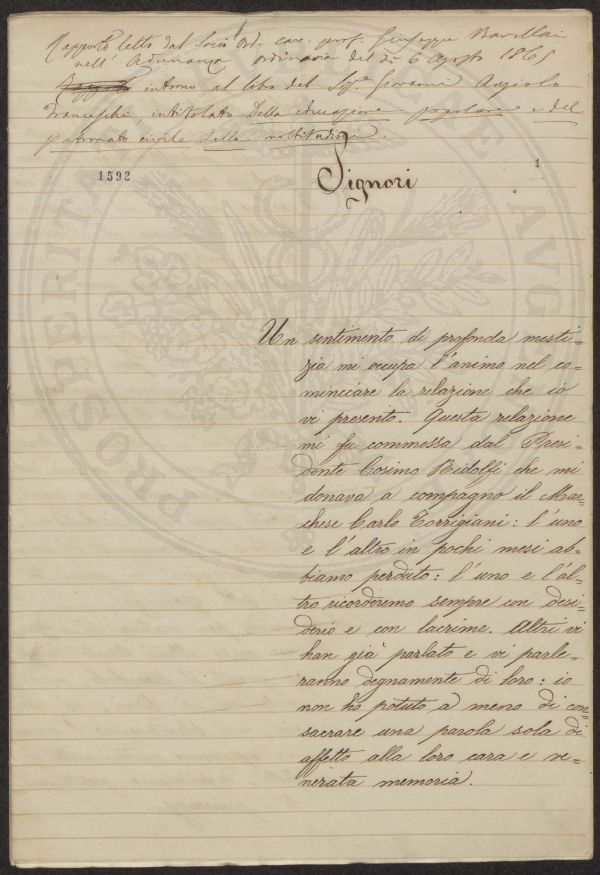 Rapporto letto dal Socio Ord. cav. prof. Giuseppe Barellai
nell' Adunanza ordinaria del dì 6 Agosto 1865
Rapporto intorno al libro del Sigr. Giovanni Angiolo
Franceschi, intitolato Della educazione popolare e del
patronato civile della moltitudine.
1592
Signori
1
Un sentimento di profonda mesti=
zia mi occupa l'animo nel co=
minciare la relazione che io
vi presento. Questa relazione
mi fu commessa dal Presi=
dente Cosimo Ridolfi che mi
donava a compagno il Mar=
chese Carlo Torrigiani: l'uno
e l'altro in pochi mesi ab=
biamo perduto: l'uno e l'al=
tro ricorderemo sempre con desi=
derio e con lacrime. Altri vi
han già parlato e vi parle=
ranno degnamente di loro: io
non ho potuto a meno di con=
sacrare una parola sola di
affetto alla loro cara e ve=
nerata memoria.
PROSPERITA AUGE